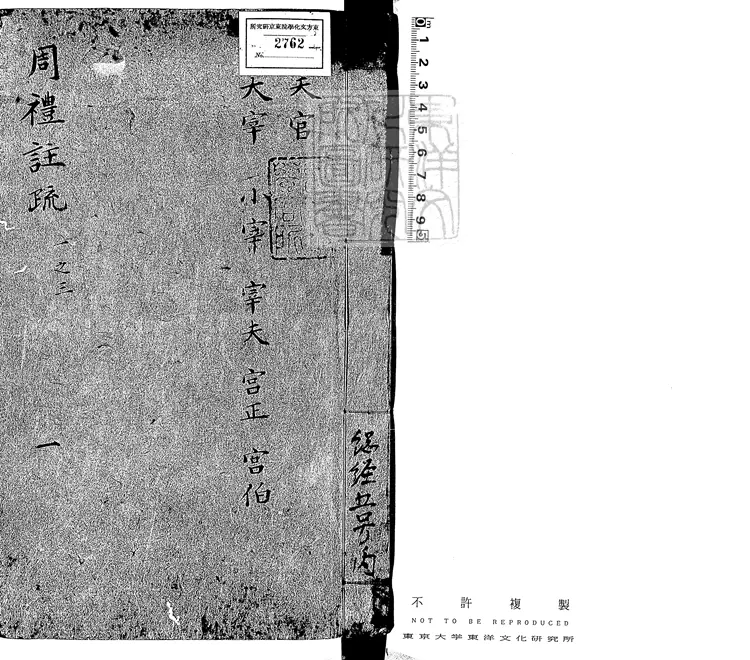 東方文化學院東京研究所
2762
No.
天官
大宰 小宰 宰夫 宮正 宮伯
周禮註疏 一之三
一
0 1 2 3 4 5 6 7 8 9
不許複製
NOT TO BE REPRODUCED
東京大学東洋文化研究所